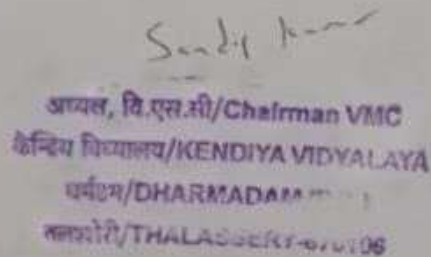 Sandip Kumar
अध्यक्ष, वि.एस.सी/Chairman VMC
केन्द्रिय विद्यालय/KENDIYA VIDYALAYA
धर्मडम/DHARMADAM
तलश्शेरी/THALASSERY-670106